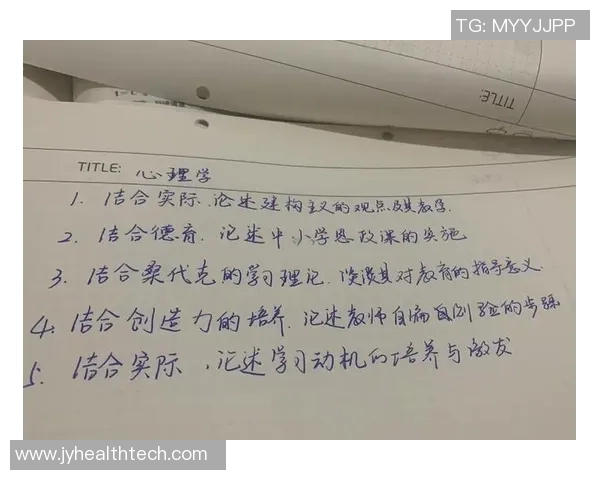 TG: MYYJJPP
TITLE:
TITLE: 心理学
1. 结合实际.论述建构主义的观点及其教学.
2. 结合德育.论述中、小学思政课的实施
3. 结合桑代克的学习理论.谈谈其对教育的指导意义.
4. 结合创造力的培养.论述教师自编自测验的步骤
5. 结合实际,论述学习动机的培养与激发
www.jyhealthtech.com